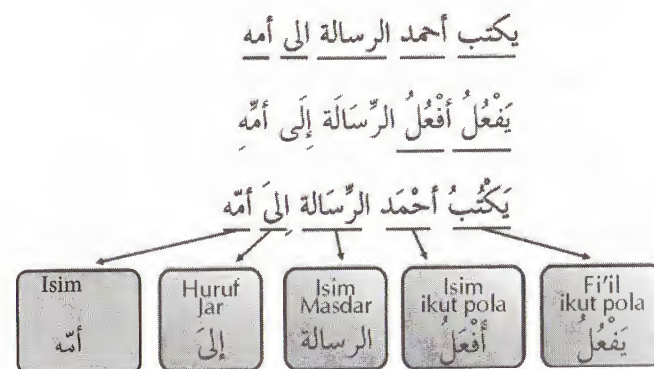 يكتب أحمد الرسالة الى أمه
يَفْعُلُ أَفْعُلُ الرِّسَالَة إِلَى أمِّهِ
يَكْتُبُ أحْمَد الرِّسَالة اِلىَ أمّه
Isim
أمّه
Huruf
Jar
إلىَ
Isim
Masdar
الرسالة
Isim
ikut pola
أَفْعَلُ
Fi'il
ikut pola
يَفْعُلُ